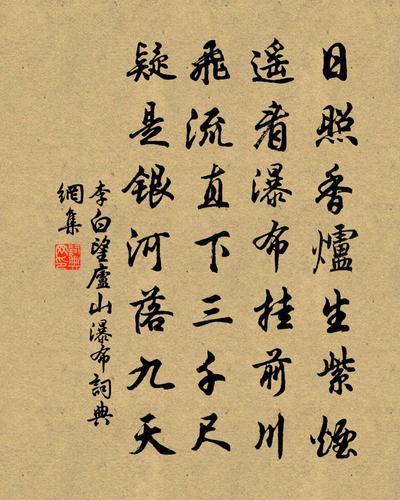 日照香爐生紫煙
遥看瀑布挂前川
飛流直下三千尺
疑是銀河落九天
李白望廬山瀑布詞典
網集